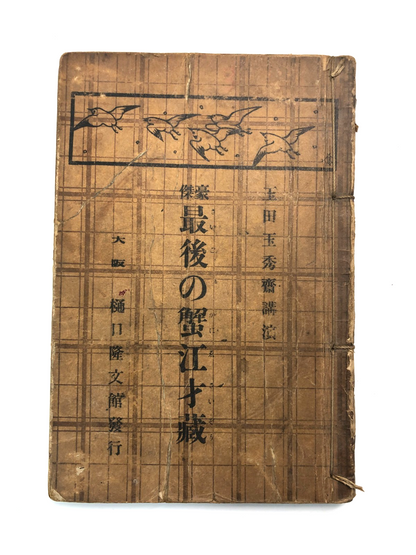 玉田玉秀齋講演
豪傑
最後の蟹江才藏
大阪 樋口隆文館發行